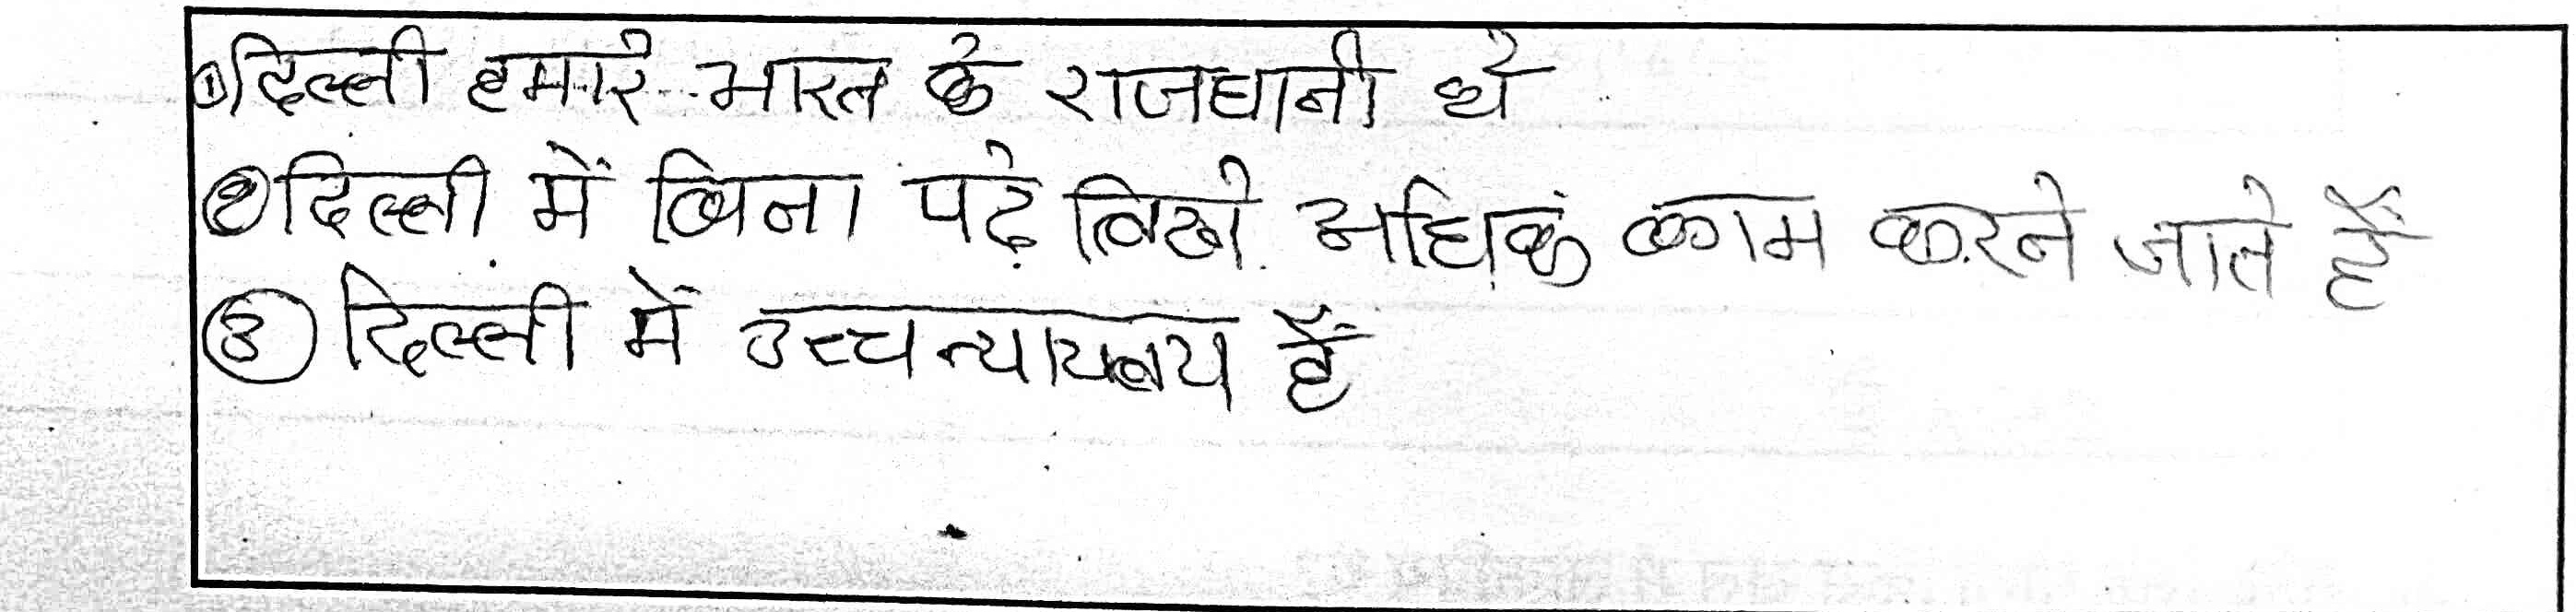 ① दिल्ली हमारे भारत के राजधानी थे
② दिल्ली में बिना पढ़े लिखे अधिकं काम करने जाते हैं
③ दिल्ली में उच्च न्यायलय हैं